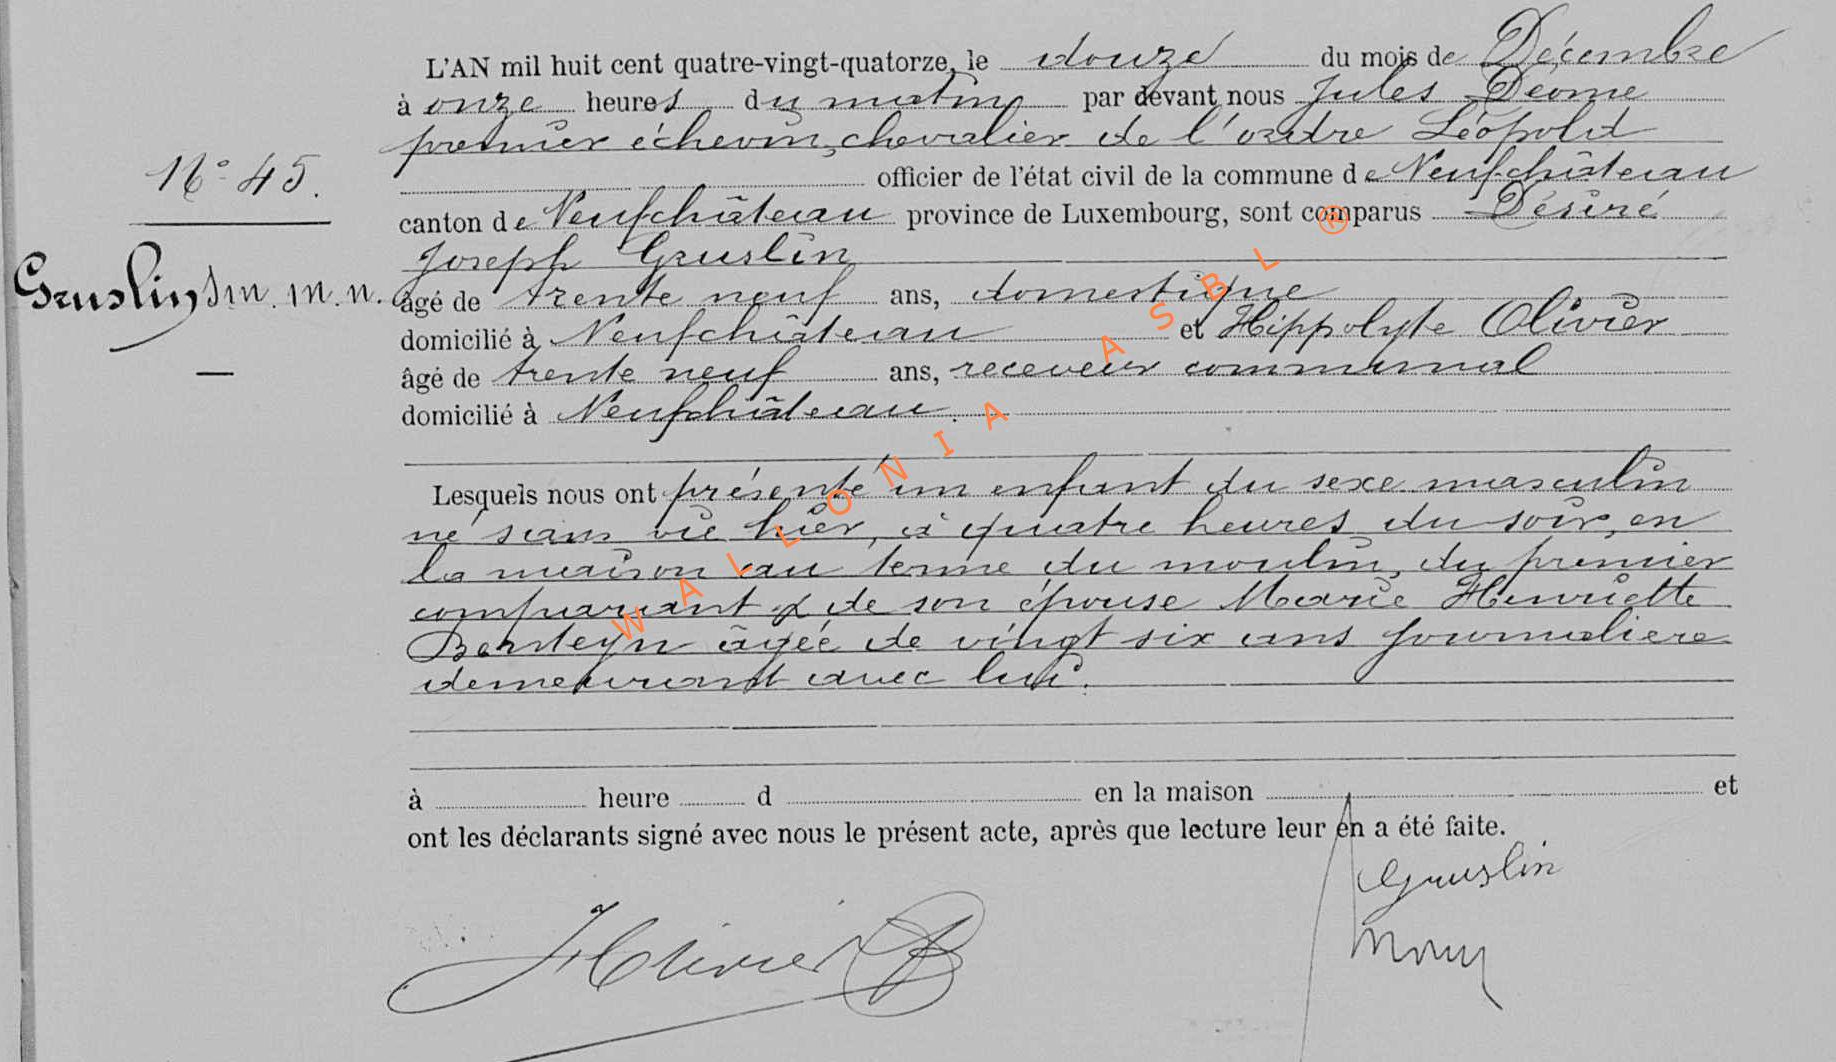 L'AN mil huit cent quatre-vingt-quatorze, le douze du mois de Décembre
à onze heures du matin par devant nous Jules Déome
premier échevin, chevalier de l'ordre Léopold
officier de l'état civil de la commune de Neufchâteau
N° 45.
canton de Neufchâteau province de Luxembourg, sont comparus Désiré
Joseph Gruslin
Gruslin m. m. n.
âgé de trente neuf ans, domestique
domicilié à Neufchâteau et Hippolyte Olivier
âgé de trente neuf ans, receveur communal
domicilié à Neufchâteau.
Lesquels nous ont présenté un enfant du sexe masculin
né sans vie hier, à quatre heures du soir, en
la maison au terme du moulin, du premier
comparant & de son épouse Marie Henriette
âgée de vingt six ans journalière
demeurant avec lui.
à heure d en la maison et
ont les déclarants signé avec nous le présent acte, après que lecture leur en a été faite.
Gruslin
HOlivier
WALLONIA ASBL ®